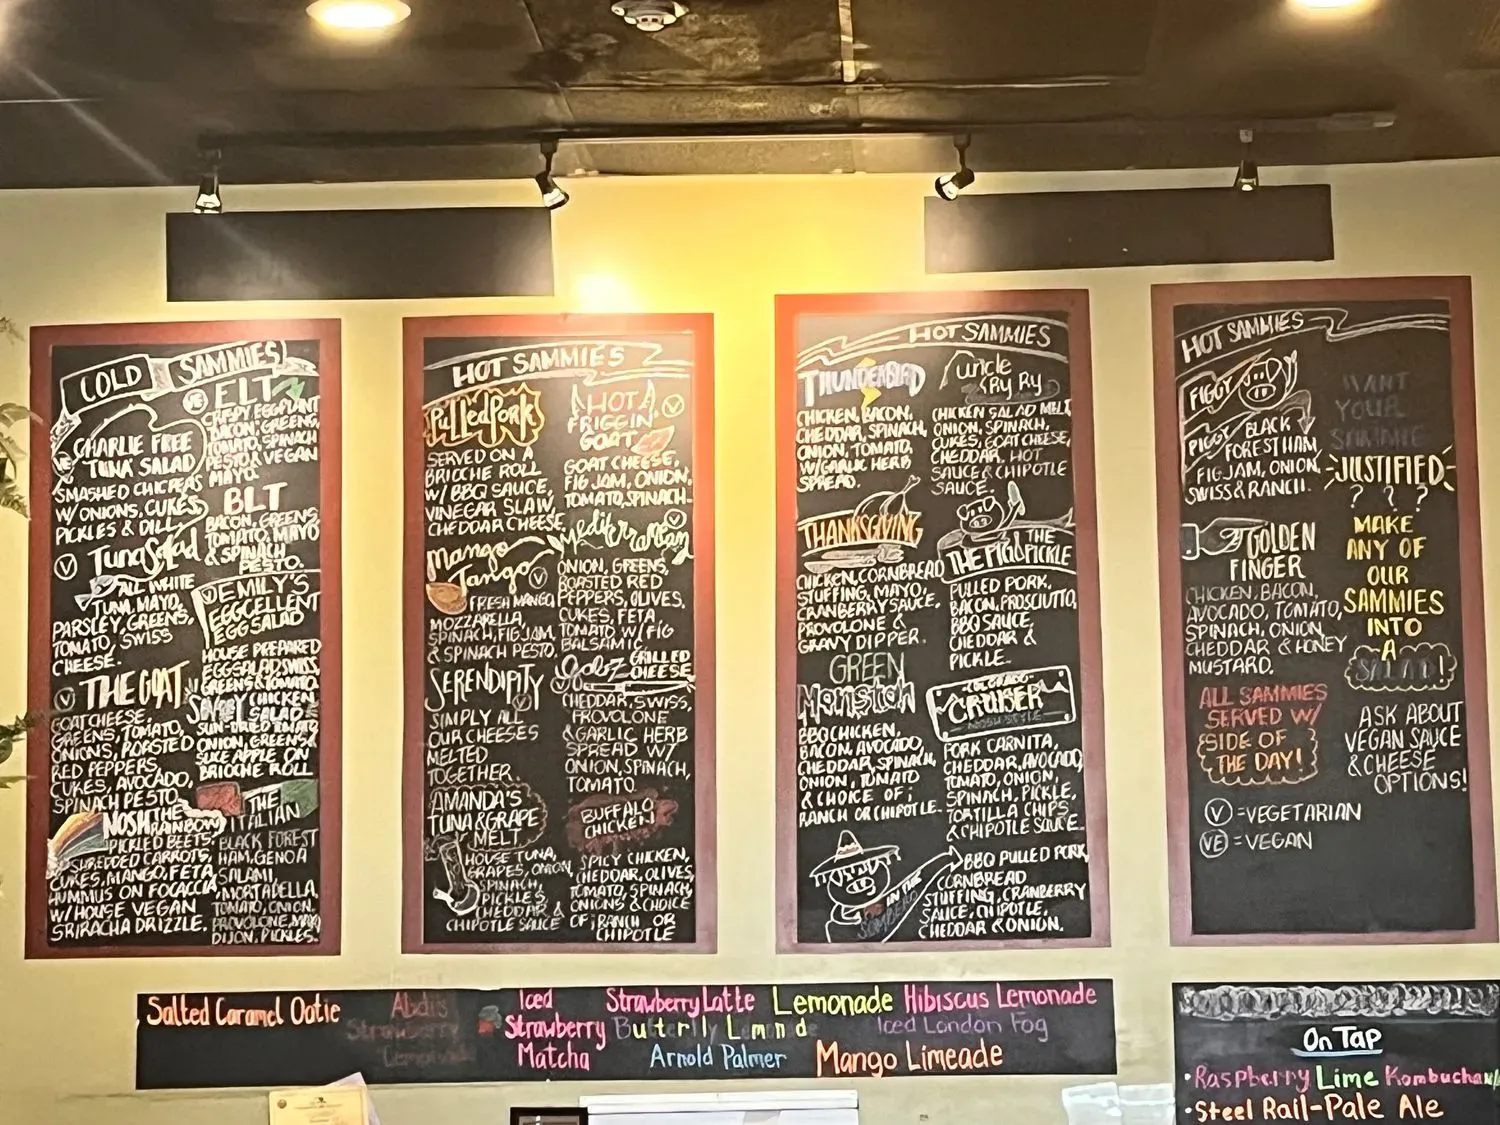 COLD SAMMIES
CHARLIE FREE
TUNA SALAD
VE
SMASHED CHICPEAS
W/ONIONS, CUKES,
PICKLES & DILL
V TUNA SALAD
ALL WHITE
TUNA, MAYO,
PARSLEY, GREENS,
TOMATO, SWISS
CHEESE.
V THE GOAT
GOAT CHEESE,
GREENS, TOMATO,
ONIONS, ROASTED
RED PEPPERS,
CUKES, AVOCADO,
SPINACH PESTO
NOSH THE RAINBOW
PICKLED BEETS,
SHREDDED CARROTS,
CUKES, MANGO, FETA,
HUMMUS ON FOCACCIA
W/HOUSE VEGAN
SRIRACHA DRIZZLE.
VE ELT
CRISPY EGGPLANT
BACON, GREENS,
TOMATO, SPINACH
PESTO & VEGAN
MAYO.
BLT
BACON, GREENS,
TOMATO, MAYO
& SPINACH
PESTO.
V EMILY'S
EGGCELLENT
EGG SALAD
HOUSE PREPARED
EGG SALAD, SWISS,
GREENS & TOMATO
CHICKEN
SALAD
SUN-DRIED TOMATO,
ONION, GREENS &
SLICE APPLE ON
BRIOCHE ROLL
THE
ITALIAN
BLACK FOREST
HAM, GENOA
SALAMI,
MORTADELLA,
TOMATO, ONION,
PROVOLONE, MAYO,
DIJON, PICKLES.
HOT SAMMIES
Pulled Pork
SERVED ON A
BRIOCHE ROLL
W/ BBQ SAUCE,
VINEGAR SLAW,
CHEDDAR CHEESE
Mango
Tango V
FRESH MANGO,
MOZZARELLA,
SPINACH, FIG JAM,
& SPINACH PESTO.
SERENDIPITY V
SIMPLY ALL
OUR CHEESES
MELTED
TOGETHER.
AMANDA'S
TUNA & GRAPE
MELT
HOUSE TUNA,
GRAPES, ONION,
SPINACH,
PICKLES,
CHEDDAR &
CHIPOTLE SAUCE
HOT V
FRIGGIN
GOAT
GOAT CHEESE,
FIG JAM, ONION,
TOMATO, SPINACH
Mediterranean V
ONION, GREENS,
ROASTED RED
PEPPERS, OLIVES,
CUKES, FETA
TOMATO W/ FIG
BALSAMIC.
GRILLED
CHEESE
V
CHEDDAR, SWISS,
PROVOLONE
& GARLIC HERB
SPREAD W/
ONION, SPINACH,
TOMATO
BUFFALO
CHICKEN
SPICY CHICKEN,
CHEDDAR, OLIVES,
TOMATO, SPINACH,
ONIONS & CHOICE
OF; RANCH OR
CHIPOTLE
HOT SAMMIES
THUNDERBIRD
CHICKEN, BACON,
CHEDDAR, SPINACH,
ONION, TOMATO,
W/GARLIC HERB
SPREAD.
THANKSGIVING
CHICKEN, CORNBREAD
STUFFING, MAYO,
CRANBERRY SAUCE,
PROVOLONE &
GRAVY DIPPER.
GREEN
Monstah
BBQ CHICKEN,
BACON, AVOCADO,
CHEDDAR, SPINACH,
ONION, TOMATO
& CHOICE OF;
RANCH OR CHIPOTLE.
IN THE
SOMBRERO
Uncle
Ry Ry
CHICKEN SALAD MELT,
ONION, SPINACH,
CUKES, GOAT CHEESE,
CHEDDAR, HOT
SAUCE & CHIPOTLE
SAUCE
THE
THE PIG PICKLE
PULLED PORK,
BACON, PROSCIUTTO,
BBQ SAUCE,
CHEDDAR &
PICKLE.
CRUISER
NOSH STYLE
PORK CARNITA,
CHEDDAR, AVOCADO,
TOMATO, ONION,
SPINACH, PICKLE,
TORTILLA CHIPS
& CHIPOTLE SAUCE
BBQ PULLED PORK,
CORNBREAD
STUFFING, CRANBERRY
SAUCE, CHIPOTLE,
CHEDDAR & ONION.
HOT SAMMIES
FIGGY
PIGGY
BLACK
FOREST HAM,
FIG JAM, ONION,
SWISS & RANCH.
GOLDEN
FINGER
CHICKEN, BACON,
AVOCADO, TOMATO,
SPINACH, ONION,
CHEDDAR & HONEY
MUSTARD.
ALL SAMMIES
SERVED W/
SIDE OF
THE DAY!
V =VEGETARIAN
VE =VEGAN
WANT
YOUR
SAMMIE
JUSTIFIED
? ? ?
MAKE
ANY OF
OUR
SAMMIES
INTO
A
SALAD!
ASK ABOUT
VEGAN SAUCE
& CHEESE
OPTIONS!
Salted Caramel Oatie
Abdi's
Strawberry
Lemonade
Iced
Strawberry
Matcha
Strawberry Latte
Lemonade
Hibiscus Lemonade
Iced London Fog
Arnold Palmer
Mango Limeade
On Tap
•Raspberry Lime Kombucha
•Steel Rail-Pale Ale